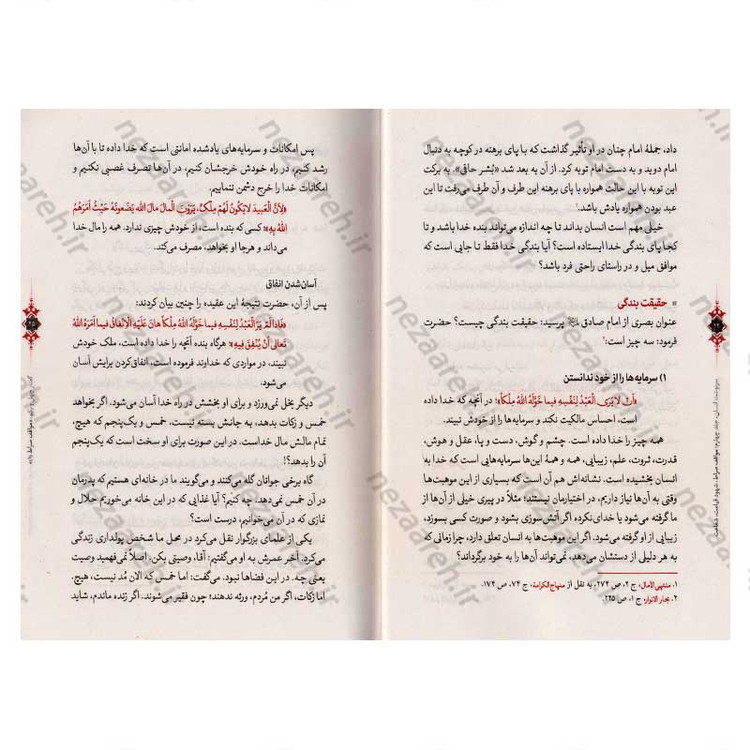 داد، جملهٔ امام چنان در او تأثیر گذاشت که با پای برهنه در کوچه به دنبال
امام دوید و به دست امام توبه کرد. از آن به بعد شد «بُشر حافی». به برکت
این توبه با این حالت همواره با پای برهنه این طرف و آن طرف می‌رفت تا این
عبد بودن همواره یادش باشد.¹
خیلی مهم است انسان بداند تا چه اندازه می‌تواند بنده خدا باشد و تا
کجا پای بندگی خدا ایستاده است؟ آیا بندگی خدا فقط تا جایی است که
موافق میل و در راستای راحتی فرد باشد؟
حقیقت بندگی
عنوان بصری از امام صادق پرسید: حقیقت بندگی چیست؟ حضرت
فرمود: سه چیز است:²
۱) سرمایه‌ها را از خود ندانستن
«أَنْ لا یَرَی الْعَبْدُ لِنَفْسِهِ فیما خَوَّلَهُ اللهُ مِلْکاً»؛ در آنچه که خدا داده
است، احساس مالکیت نکند و سرمایه‌ها را از خودش نبیند.
همه چیز را خدا داده است. چشم و گوش، دست و پا، عقل و هوش،
قدرت، ثروت، علم، زیبایی، همه و همهٔ این‌ها سرمایه‌هایی است که خدا به
انسان بخشیده است. نشانه‌اش هم آن است که بسیاری از این موهبت‌ها
وقتی به آن‌ها نیاز داریم، در اختیارمان نیستند؛ مثلاً در پیری خیلی از آن‌ها از
ما گرفته می‌شود یا خدای‌نکرده اگر آتش‌سوزی بشود و صورت کسی بسوزد،
زیبایی از او گرفته می‌شود. اگر این موهبت‌ها به انسان تعلق دارد، چرا زمانی که
به هر دلیلی از دستشان می‌دهد، نمی‌تواند آن‌ها را به خود برگرداند؟
۱. منتهی‌الآمال، ج ۲، ص ۲۷۴، به نقل از منهاج الکرامة، ج ۷۴، ص ۱۷۴.
۲. بحار الانوار، ج ۱، ص ۲۲۵.
سرنوشت انسان، جلد چهارم: مواقف صراط، شهود قیامت، شفاعت
پس امکانات و سرمایه‌های یادشده امانتی است که خدا داده تا با آن‌ها
رشد کنیم، در راه خودش خرجشان کنیم، در آن‌ها تصرف غصبی نکنیم و
امکانات خدا را خرج دشمن ننماییم.
«لِأَنَّ الْعَبیدَ لا یَکُونُ لَهُمْ مِلْکٌ، یَرَوْنَ الْمالَ مالَ اللهِ یَضَعُونَهُ حَیْثُ أَمَرَهُمُ
اللهُ بِهِ»؛ کسی که بنده است، از خودش چیزی ندارد. همه را مال خدا
می‌داند و هرجا او بخواهد، مصرف می‌کند.
آسان‌شدن انفاق
پس از آن، حضرت نتیجهٔ این عقیده را چنین بیان کردند:
«فَإِذا لَمْ یَرَ الْعَبْدُ لِنَفْسِهِ فیما خَوَّلَهُ اللهُ مِلْکاً هانَ عَلَیْهِ الْإِنْفاقُ فیما أَمَرَهُ اللهُ
تَعالی أَنْ یُنْفِقَ فیهِ»؛ هرگاه بنده آنچه را خدا داده است، ملک خودش
نبیند، در مواردی که خداوند فرموده است، انفاق‌کردن برایش آسان
می‌شود.
دیگر بخل نمی‌ورزد و برای او بخشش در راه خدا آسان می‌شود. اگر بخواهد
خمس و زکات بدهد، به جانش بسته نیست، خمس و یک‌پنجم که هیچ،
تمام مالش مال خداست. در این صورت برای او سخت است که یک‌پنجم
آن را بدهد؟!
گاه برخی جوانان گله می‌کنند و می‌گویند ما در خانه‌ای هستیم که پدرمان
در آن خمس نمی‌دهد. چه کنیم؟ آیا غذایی که در این خانه می‌خوریم حلال و
نمازی که در آن می‌خوانیم، درست است؟
یکی از علمای بزرگوار نقل می‌کرد در محل ما شخص پولداری زندگی
می‌کرد. آخر عمرش به او می‌گفتیم: آقا، وصیتی بکن. اصلاً نمی‌فهمید وصیت
یعنی چه. در این فضاها نبود. می‌گفت: اما خمس که الان مُد نیست، هیچ.
اما زکات، اگر من مُردم، ورثه ندهند؛ چون فقیر می‌شوند. اگر زنده ماندم، شاید
nezaareh.ir